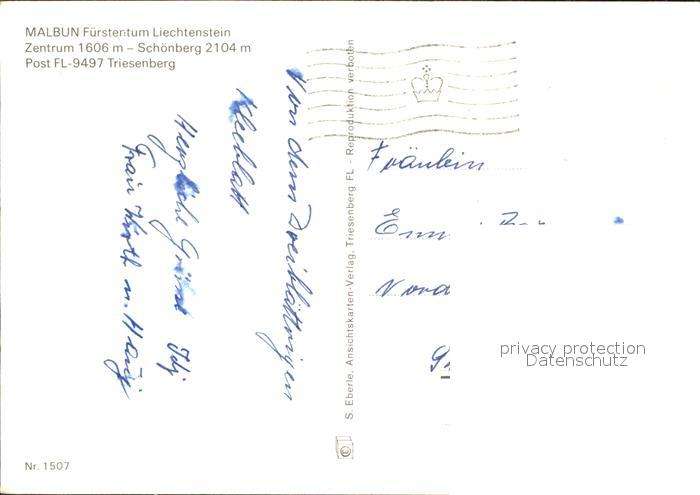 MALBUN Fürstentum Liechtenstein
Zentrum 1606 m – Schönberg 2104 m
Post FL-9497 Triesenberg
Von dem Zweiblättrigen
Kleeblatt
Herzliche Grüsse
Frau u.
S. Eberle, Ansichtskarten-Verlag, Triesenberg FL – Reproduktion verboten
Fräulein
privacy protection
Datenschutz
Nr. 1507